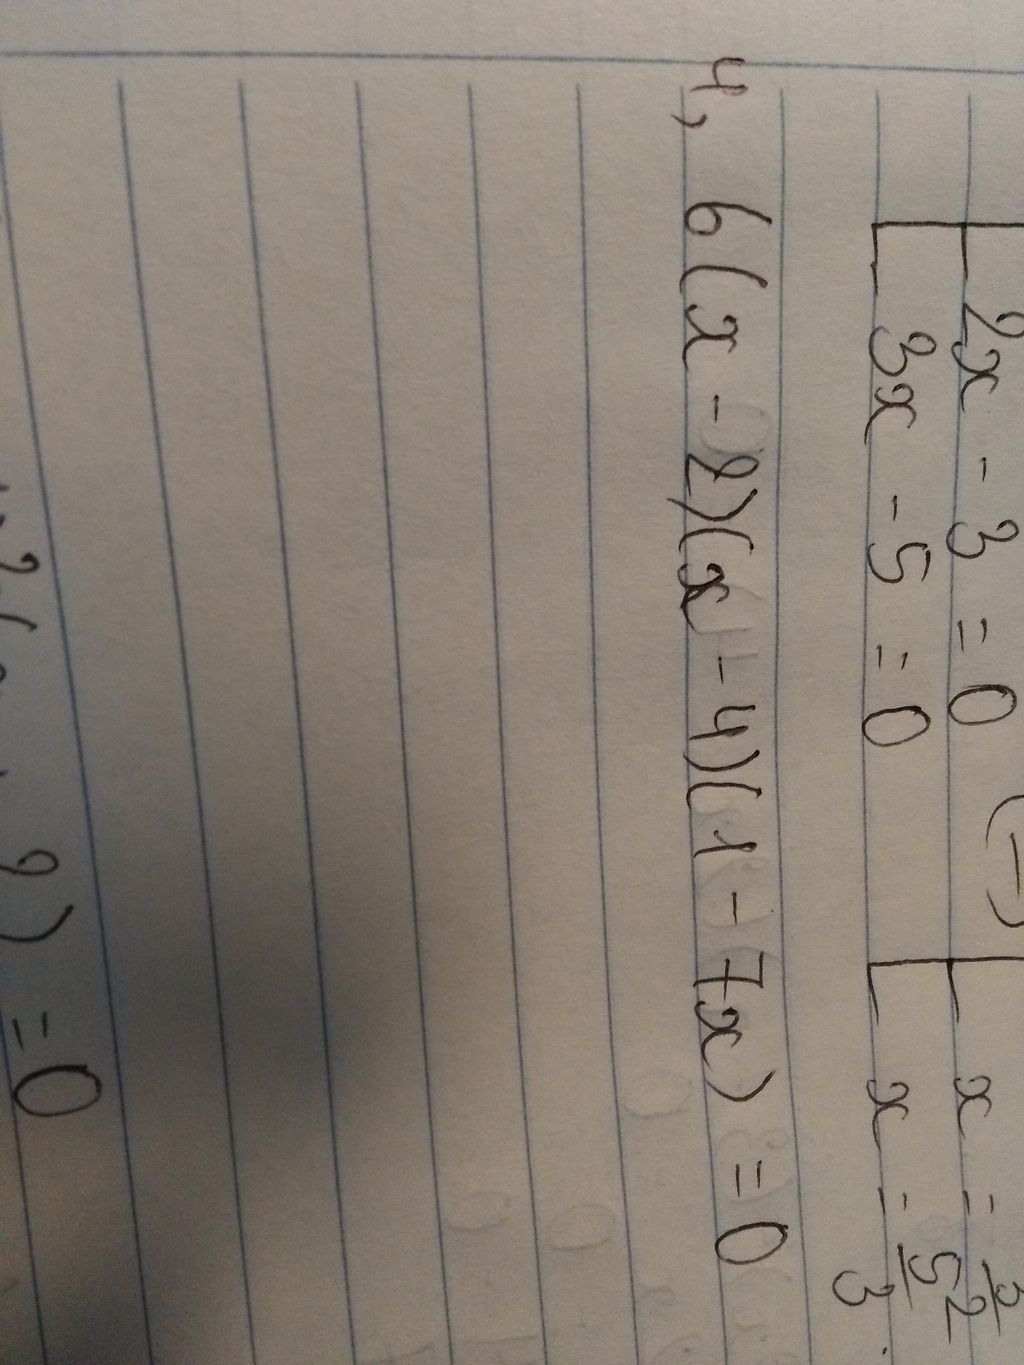 2x - 3 = 0 (–) x = 3/2
3x - 5 = 0 x = 5/3
4, 6(x - 2)(x - 4)(1 - 7x) = 0
2) = 0